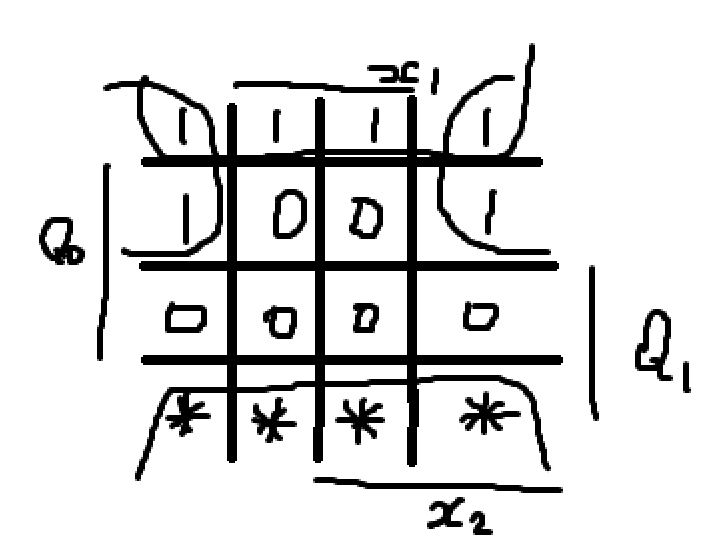 x₁
1 1 1 1
Q₀ 1 0 0 1
0 0 0 0 Q₁
* * * *
x₂